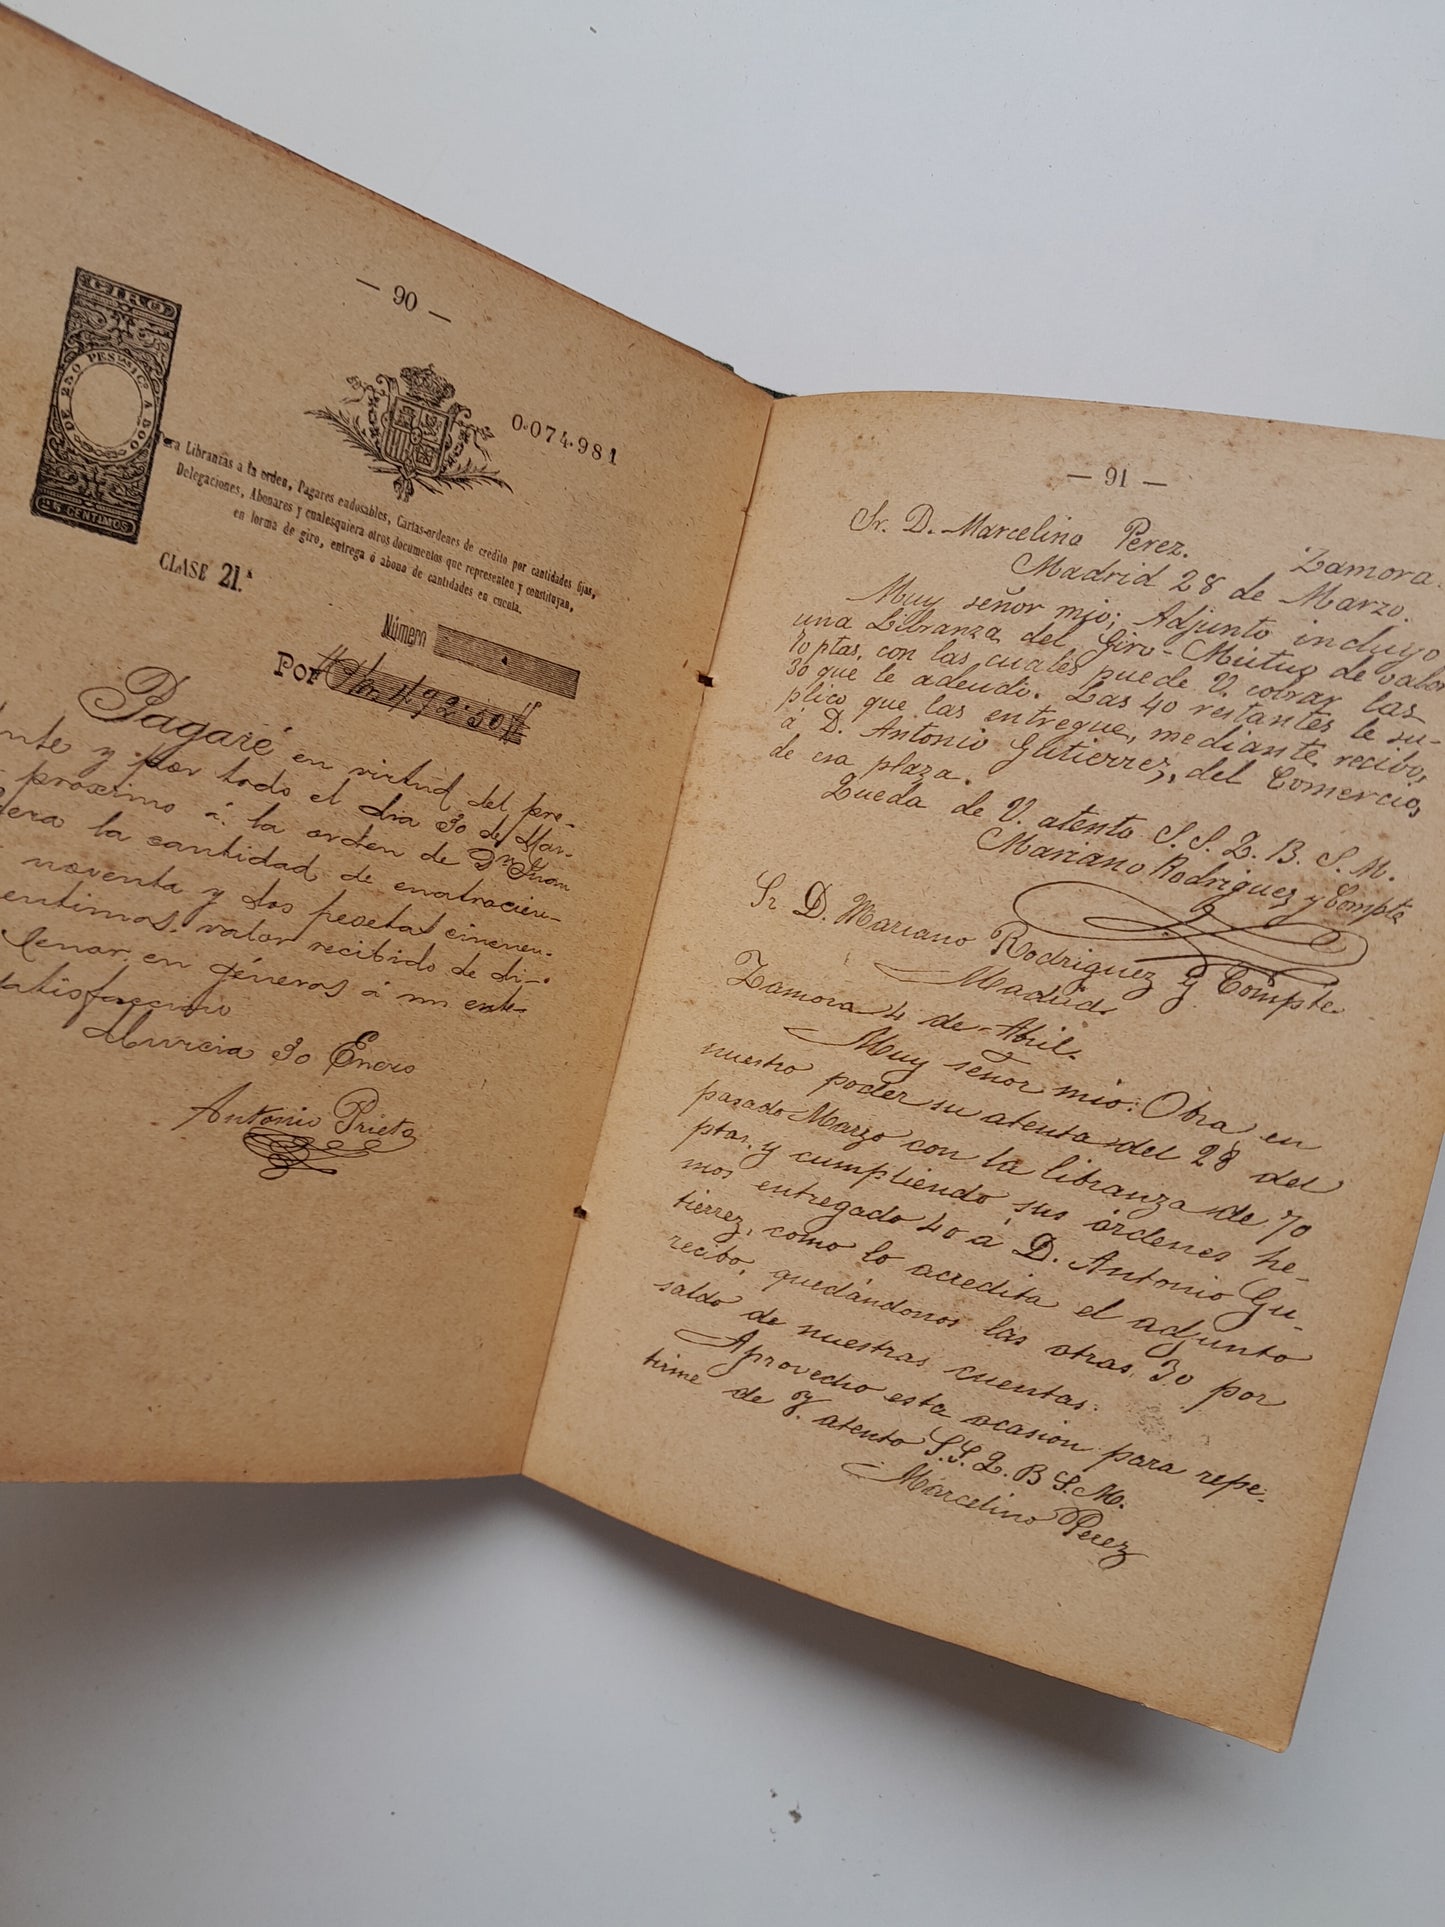 — 90 —
GIRO
DE 250 PESTAS 1 Co A 500
25 CENTIMOS
0.074.981
Para Libranzas a la orden, Pagares endosables, Cartas-ordenes de crédito por cantidades fijas,
Delegaciones, Abonares y cualesquiera otros documentos que representen y constituyan,
en forma de giro, entrega ó abono de cantidades en cuenta.
CLASE 21.ª
Número
Por 492·50
Pagaré en virtud del pre-
y por todo el dia 30 de Mar-
próximo á la orden de Dn Juan
la cantidad de cuatrocien-
noventa y dos pesetas cincuen-
valor recibido de di-
en géneros á mi ente-
Murcia 30 Enero
Antonio Prieto
— 91 —
Sr. D. Marcelino Perez. Zamora.
Madrid 28 de Marzo.
Muy señor mio; Adjunto incluyo
una Libranza del Giro-Mútuo de valor
70 ptas, con las cuales puede V. cobrar las
30 que le adeudo. Las 40 restantes le su-
plico que las entregue, mediante recibo,
á D. Antonio Gutierrez, del Comercio,
de esa plaza.
Queda de V. atento S. S. Q. B. S. M.
Mariano Rodriguez y Compte
Sr. D. Mariano Rodriguez y Compte
Madrid.
Zamora 4 de Abril.
Muy señor mio: Obra en
nuestro poder su atenta del 28 del
pasado Marzo con la libranza de 70
ptas. y cumpliendo sus órdenes he-
mos entregado 40 á D. Antonio Gu-
tierrez, como lo acredita el adjunto
recibo, quedándonos las otras 30 por
saldo de nuestras cuentas.
Aprovecho esta ocasion para repe-
tirme de V. atento S.S.Q.B S.M.
Marcelino Perez